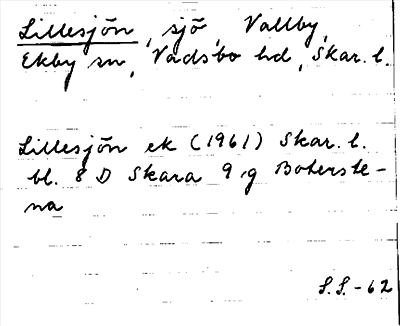 Lillesjön, sjö, Vallby,
Ekby sn, Vadsbo hd, Skar. l.
Lillesjön ek (1961) Skar. l.
bl. 8 D Skara 9 g Boterste-
na
S.S.-62